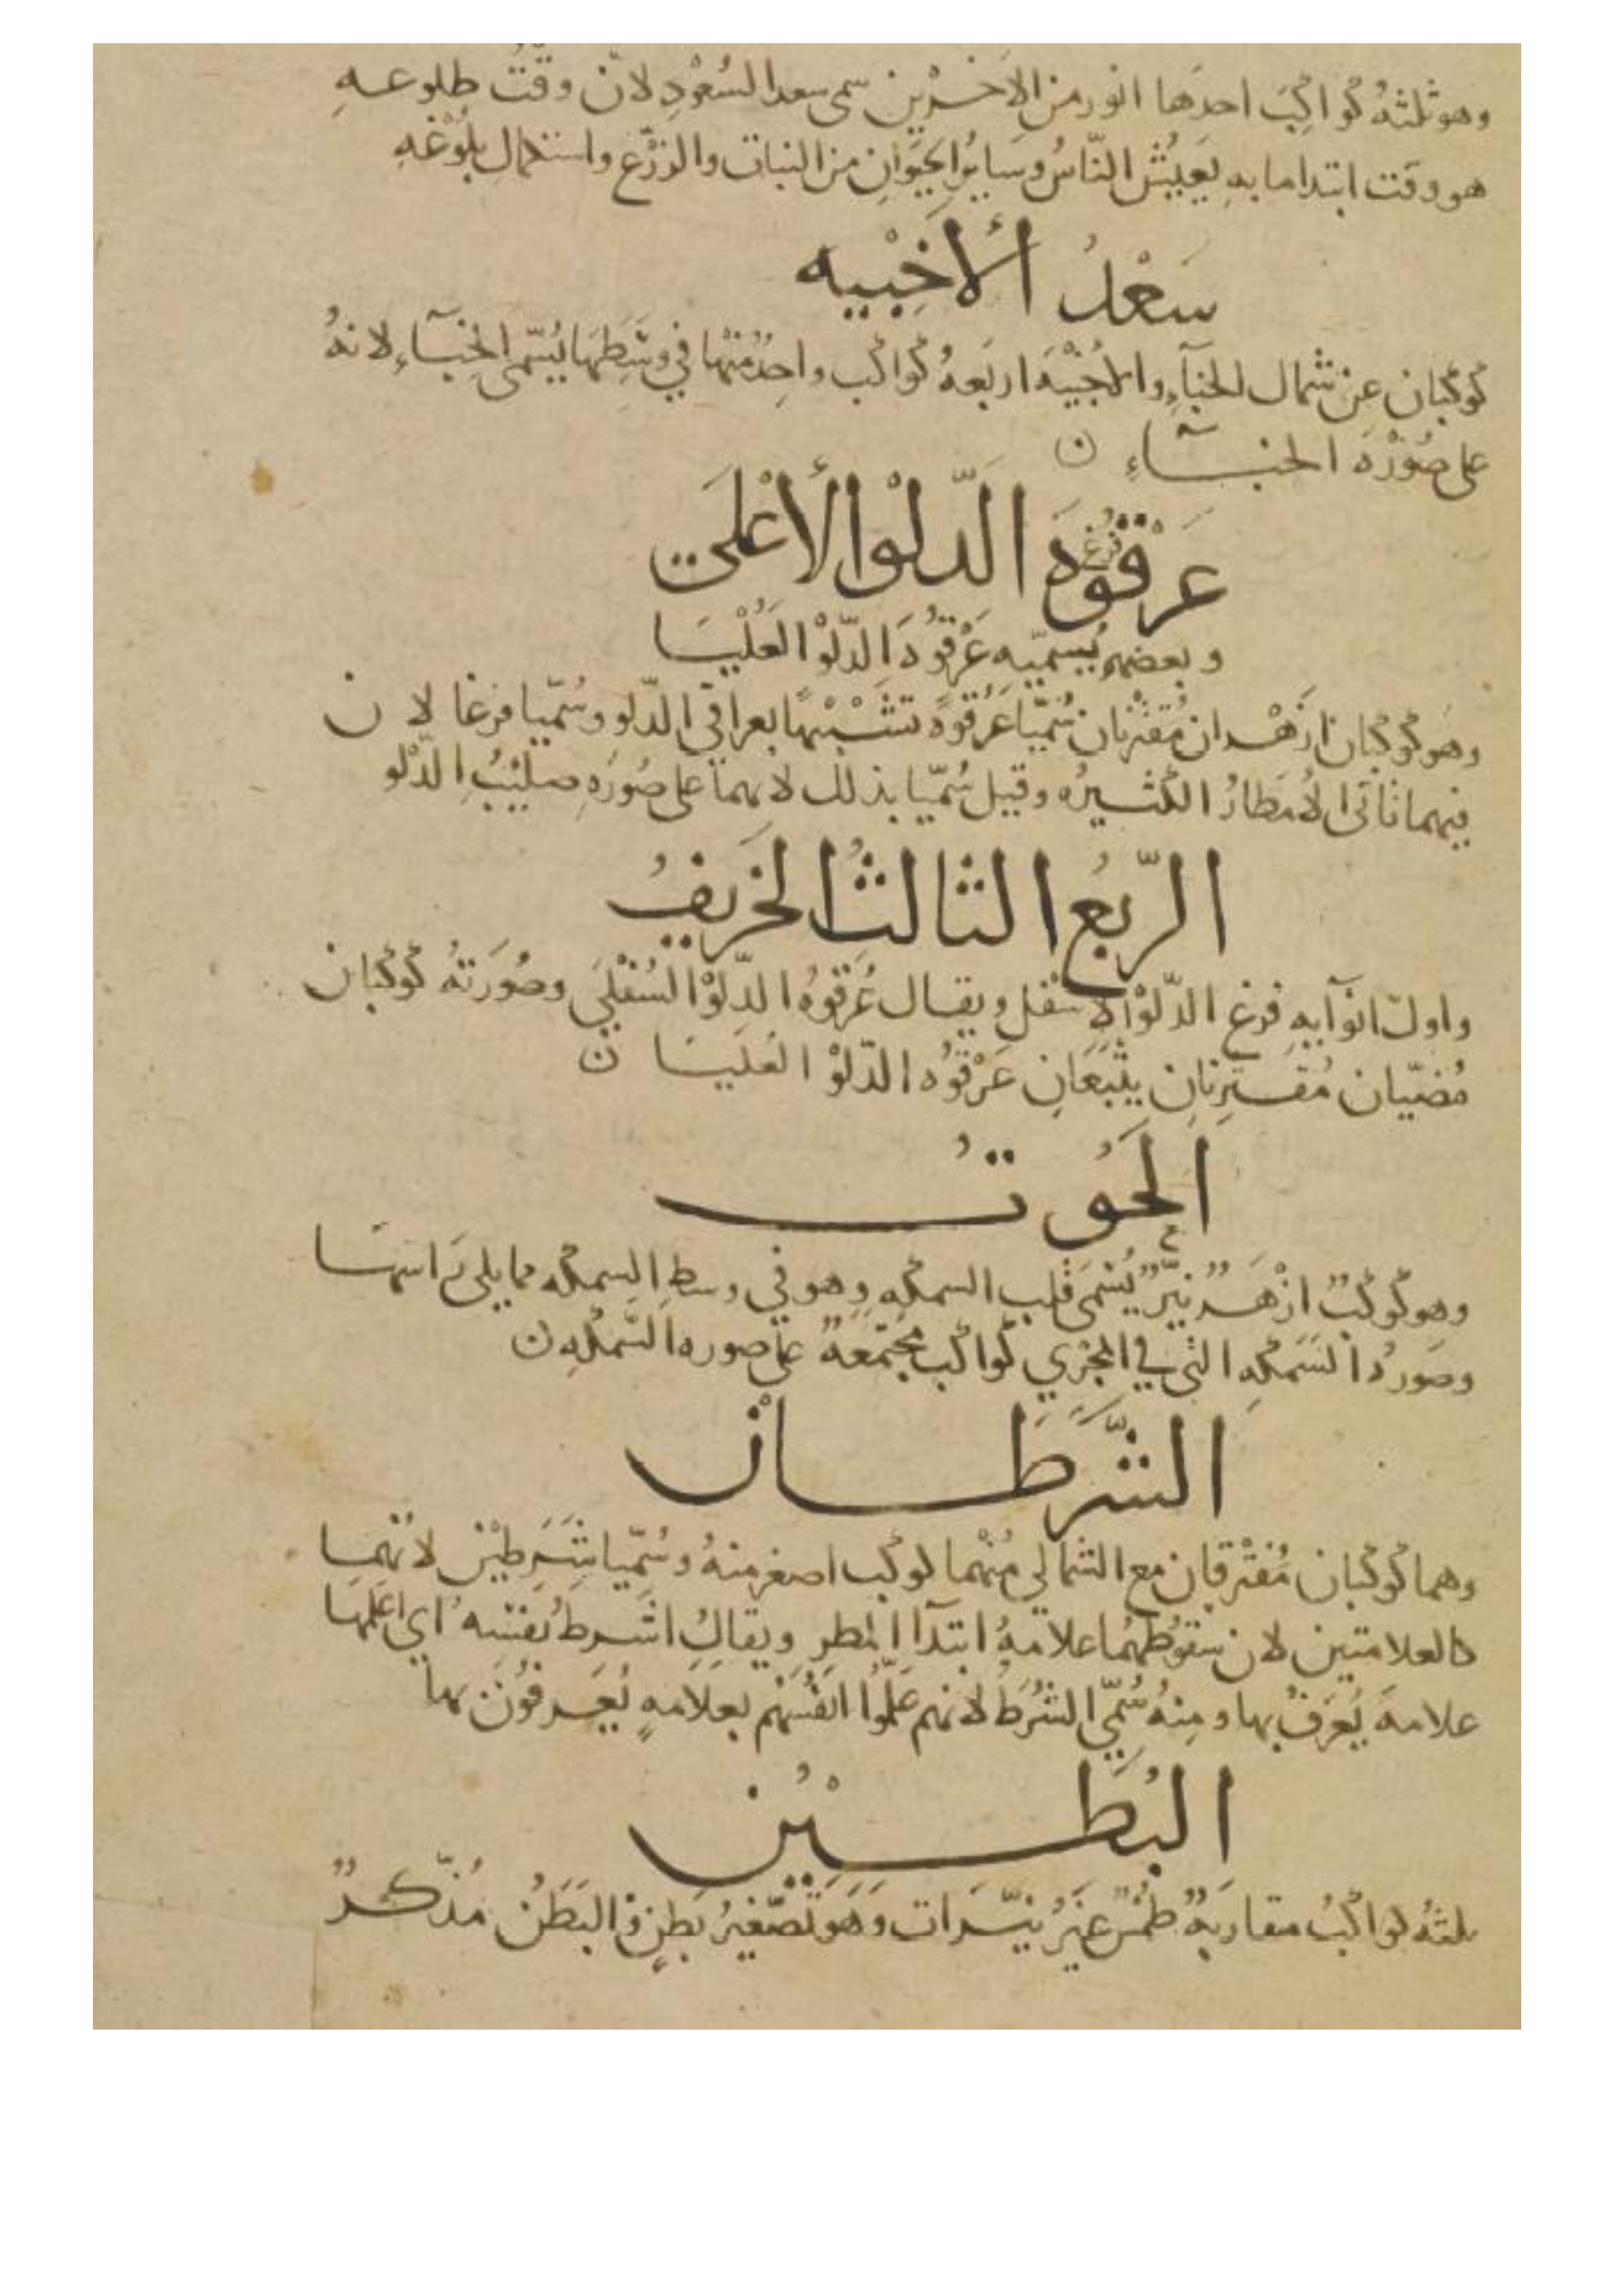 وهو ثلثهُ كواكِبَ احدَها انور من الاَخَرْين سمى سعد السُعُوْدِ لانّ وقتُ طلوعهِ
هو وقت ابتدا ما بهِ يَعيْشُ النّاسُ وسَايرُ الحَيَوَانِ من النبات والزرْع واستكمالِ بلُوْغهِ
سَعْدُ الأخبْيِيه
كوكبان عن شمال الخبآءِ والاخْبْيَهُ اربَعهُ كواكب واحِدٌ منْها في وسَطِهَا يُسَمّى الخبآءِ لانهُ
على صُوْرَهَ الخبآءِ ن
عَرْقُوَهَ الدّلوْ الأعْلىَ
فرغ
وبعضهم يُسميّه عَرْقُوَهَ الدّلوْ العُلْيَا
وهوَ كوكبان ازْهَران مُقتْرنان سُمّيَا عَرْقُوَهً تَشْبيْهًا بعراقي الدّلو وسُمّيا فرغا لان
فيهما تاتى الاَمطارُ الكثيرُه وقيل سُمّيا بذلك لانهما على صُورَهِ صليْبُ الدّلو
الرّبعُ الثالثُ الخرَيفُ
واولّ انوَآيهِ فرغ الدّلوْ الاسْفل ويقال عَرْقوُهُ الدّلوْ السُفْلىَ وصُورَتهُ كوكبان
مُضيّان مُقترِنانِ يتْبَعَانِ عَرْقوُه الدّلوْ العُليَا ن
الحَوُتُ
وهو كوكبٌ ازْهَرٌ نيّرٌ يُسْمى قلب السمكهِ وهو في وسطِ السمكه مما يلى راسها
وصَورهُ السَمكهِ التي في المجْري كواكب مجتمَعهٌ على صوره السّمكهِ ن
الشَّرَطَانْ
وهما كوكبان مُفتْرقان مع الشمالي منْهما كوكب اصغر منهُ وسُمّيا شَرَطيْن لانّهما
كالعلامتين لان سقوُطهُما علامهُ ابتدآا المطرِ ويقالُ اشَرطَ نفسَهُ اي اعْلمهَا
علامهَ يُعَرفُ بها ومِنهُ سُمّي الشُرَطُ لانهم علّموُا انفُسَهْم بعلَامهٍ يُعَرفوُنَ بها
البُطَيْنُ
ثلثهُ كواكبُ متقاربهٌ طُمْسٌ غيَرُ نيّرات وَهَوَ تَصْغيْرُ بَطنٍ والبَطَنُ مُذّكرٌ